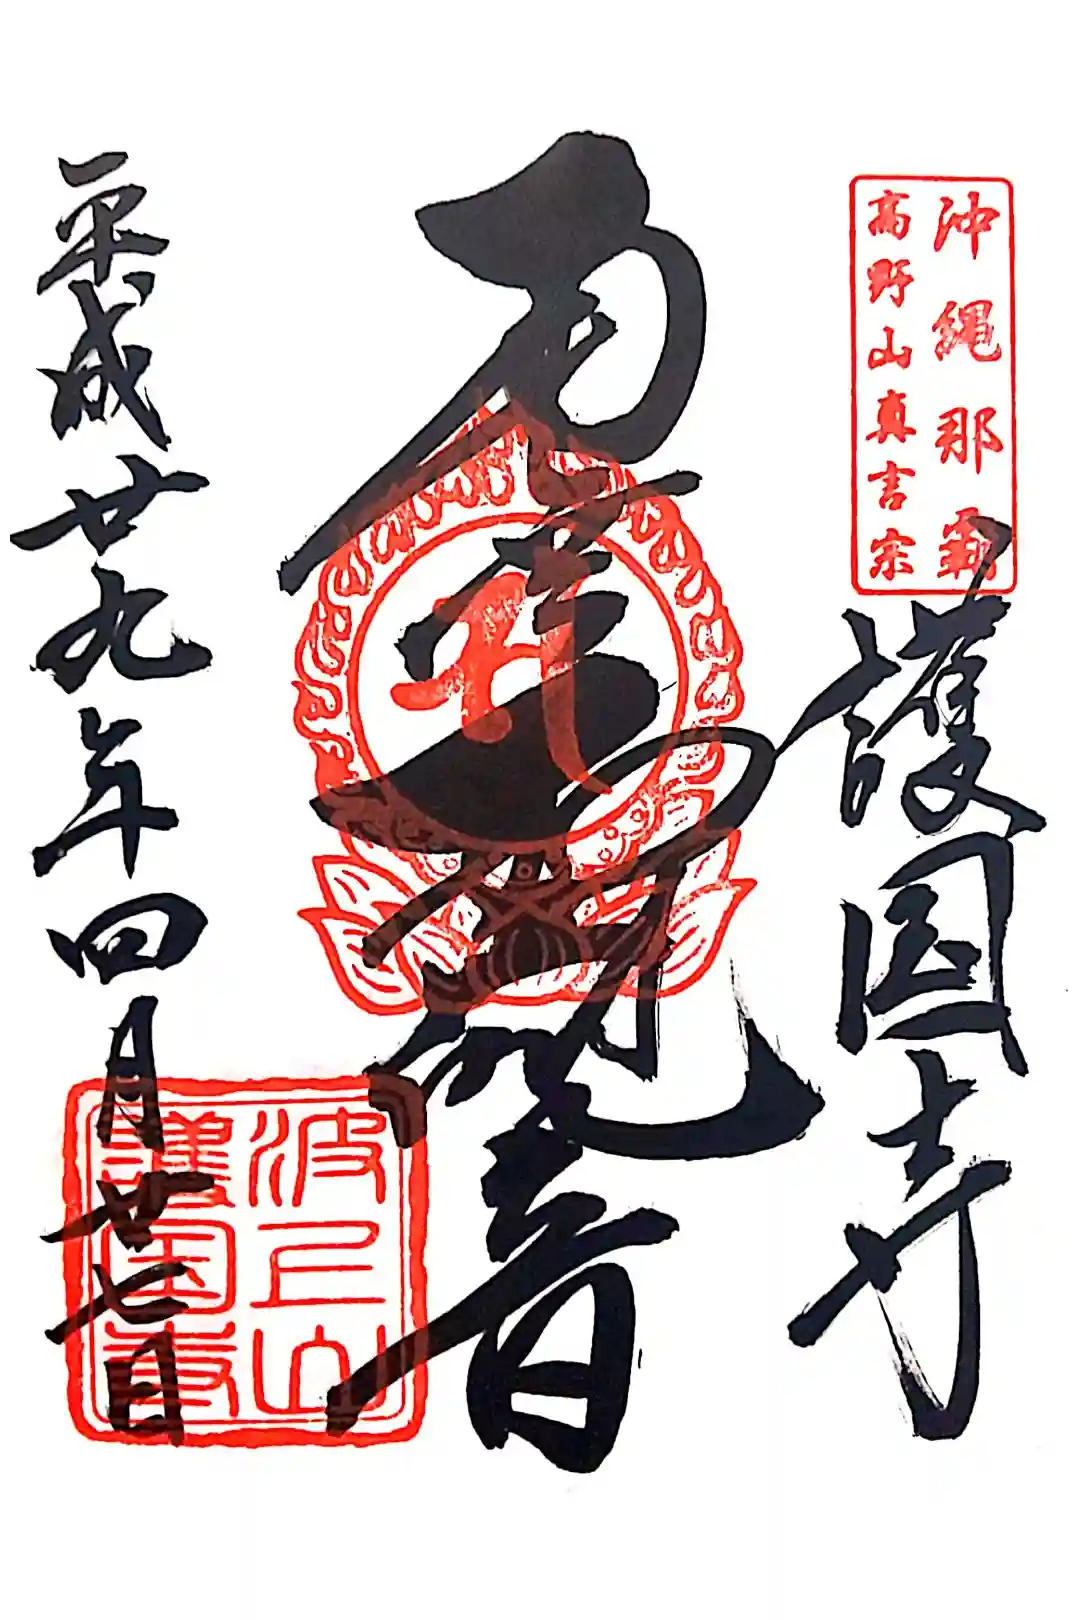 沖縄那覇
高野山真言宗
護国寺
聖観音
波上山
護国寺
平成廿九年四月廿七日